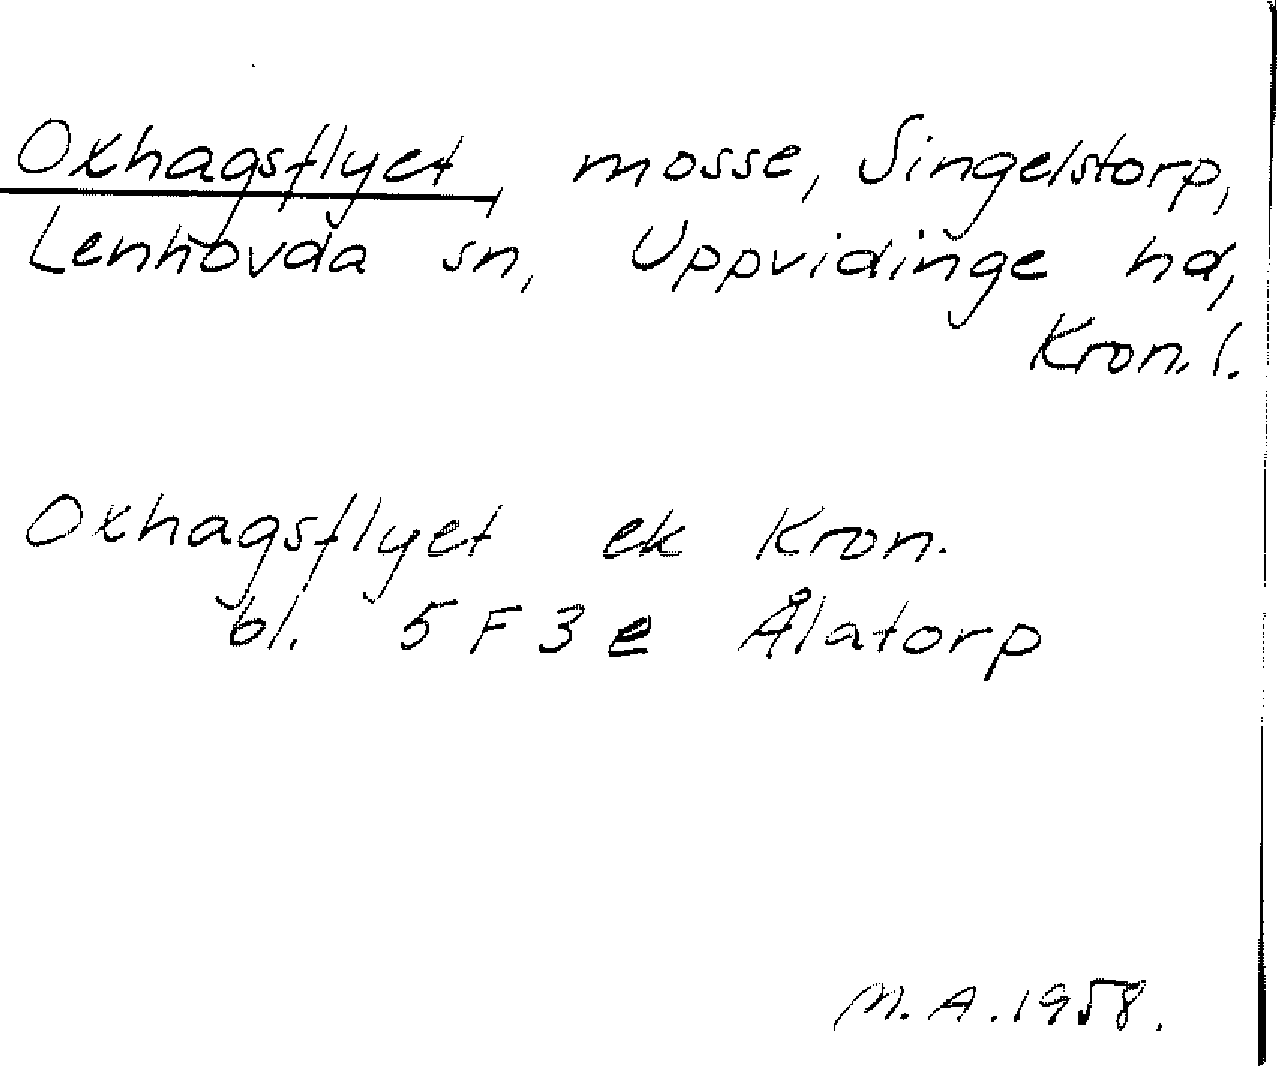 Oxhagsflyet, mosse, Singelstorp,
Lenhovda sn, Uppvidinge hd,
Kron. l.
Oxhagsflyet ek Kron.
bl. 5F3e Ålatorp
M.A. 1958.